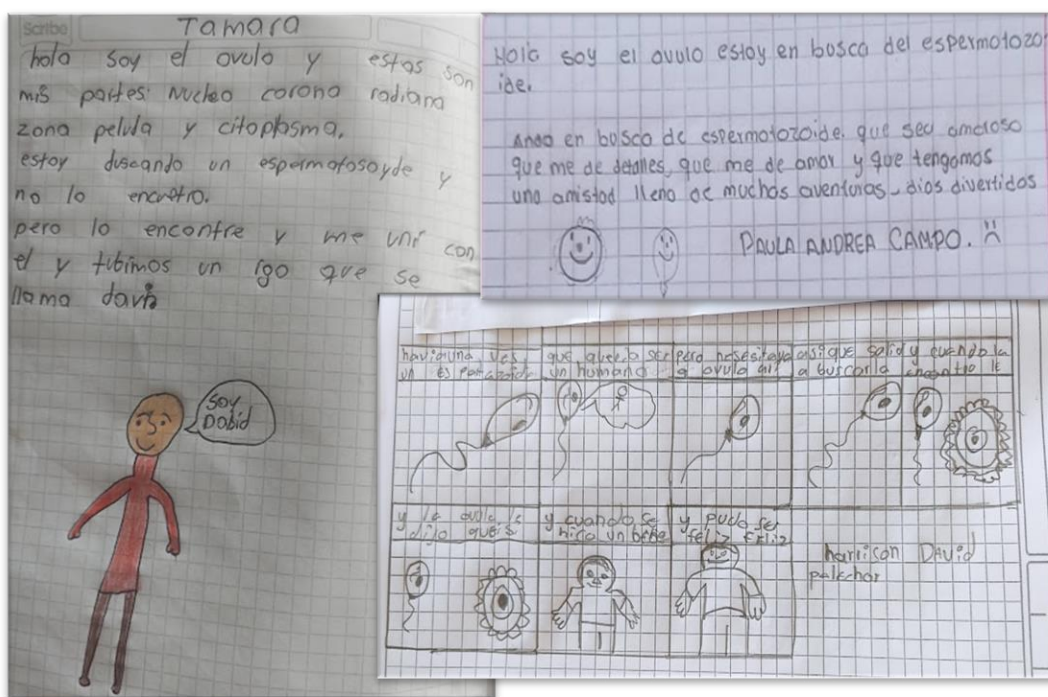 Scribe
Tamara
hola soy el ovulo y estas son
mis partes: Nucleo corona radiana
zona pelula y citoplasma.
estoy duscando un espermatosoyde y
no lo encuetro.
pero lo encontre y me uni con
el y tubimos un igo que se
llama david
Soy
Dabid
Hola soy el ovulo estoy en busca del espermotozo
ide.
Ando en busca de espermotozoide. que sea amoroso
que me de detalles, que me de amor y que tengamos
una amistad lleno de muchas aventuras - dias divertidos
PAULA ANDREA CAMPO.
havia una ves
un
que queria ser
un humano
pero nesesitava
a ovulo
asi que salio
a buscarla
y cuando la
encontro le
y la ovulo le
dijo
y cuando se
hizo un bebe
y pudo ser
feliz feliz
harrison DAViD
palechor